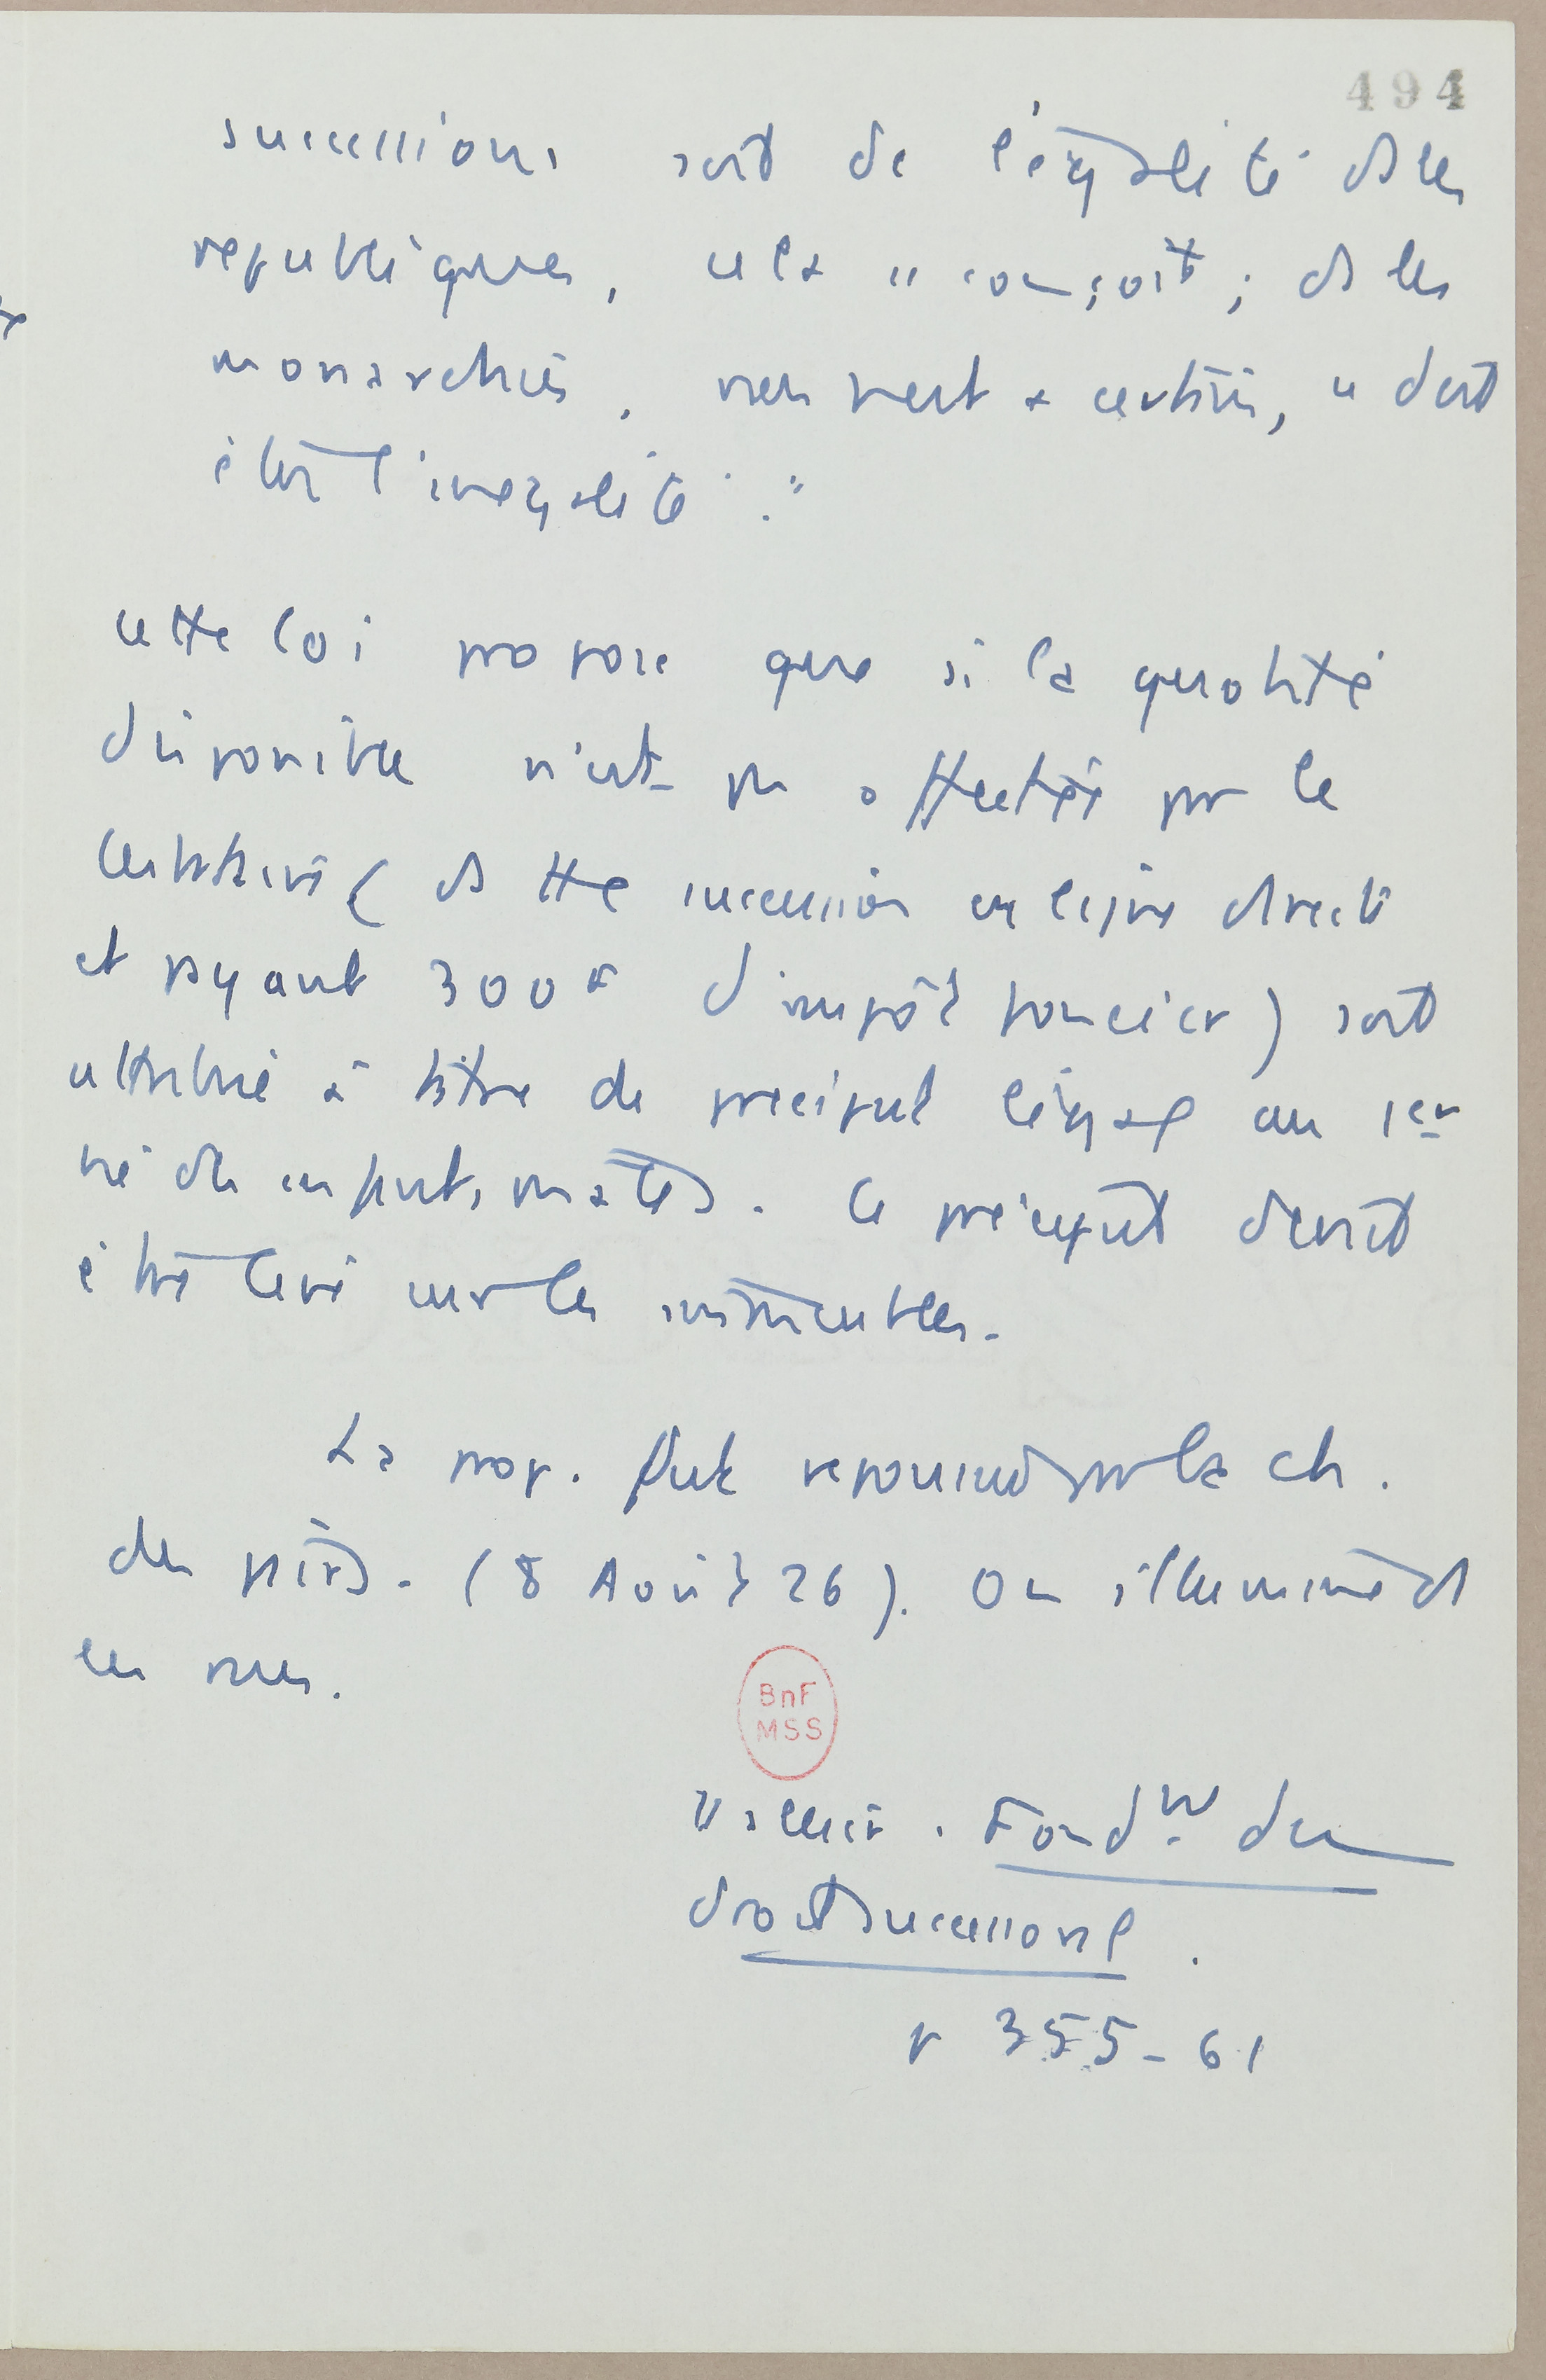 494
successions soit de l'égalité ds les
republiques, cela se conçoit ; ds les
monarchies, rien n'est + certain, ce doit
être l'inegalité."
cette loi propose que si la quotité
disponible n'est pas affectée par le
testateur (ds tte succession en ligne directe
et payant 300 F d'impôt foncier) soit
attribué à titre de preciput légal au 1er
né des enfants mâles. Ce préciput devrait
être levé sur les immeubles.
La prop. fut repoussée par la ch.
des pairs. (8 Avril 26). On illumine ds
les rues.
Vallier. Fondt du
droit successoral.
p 355-61
BnF
MSS